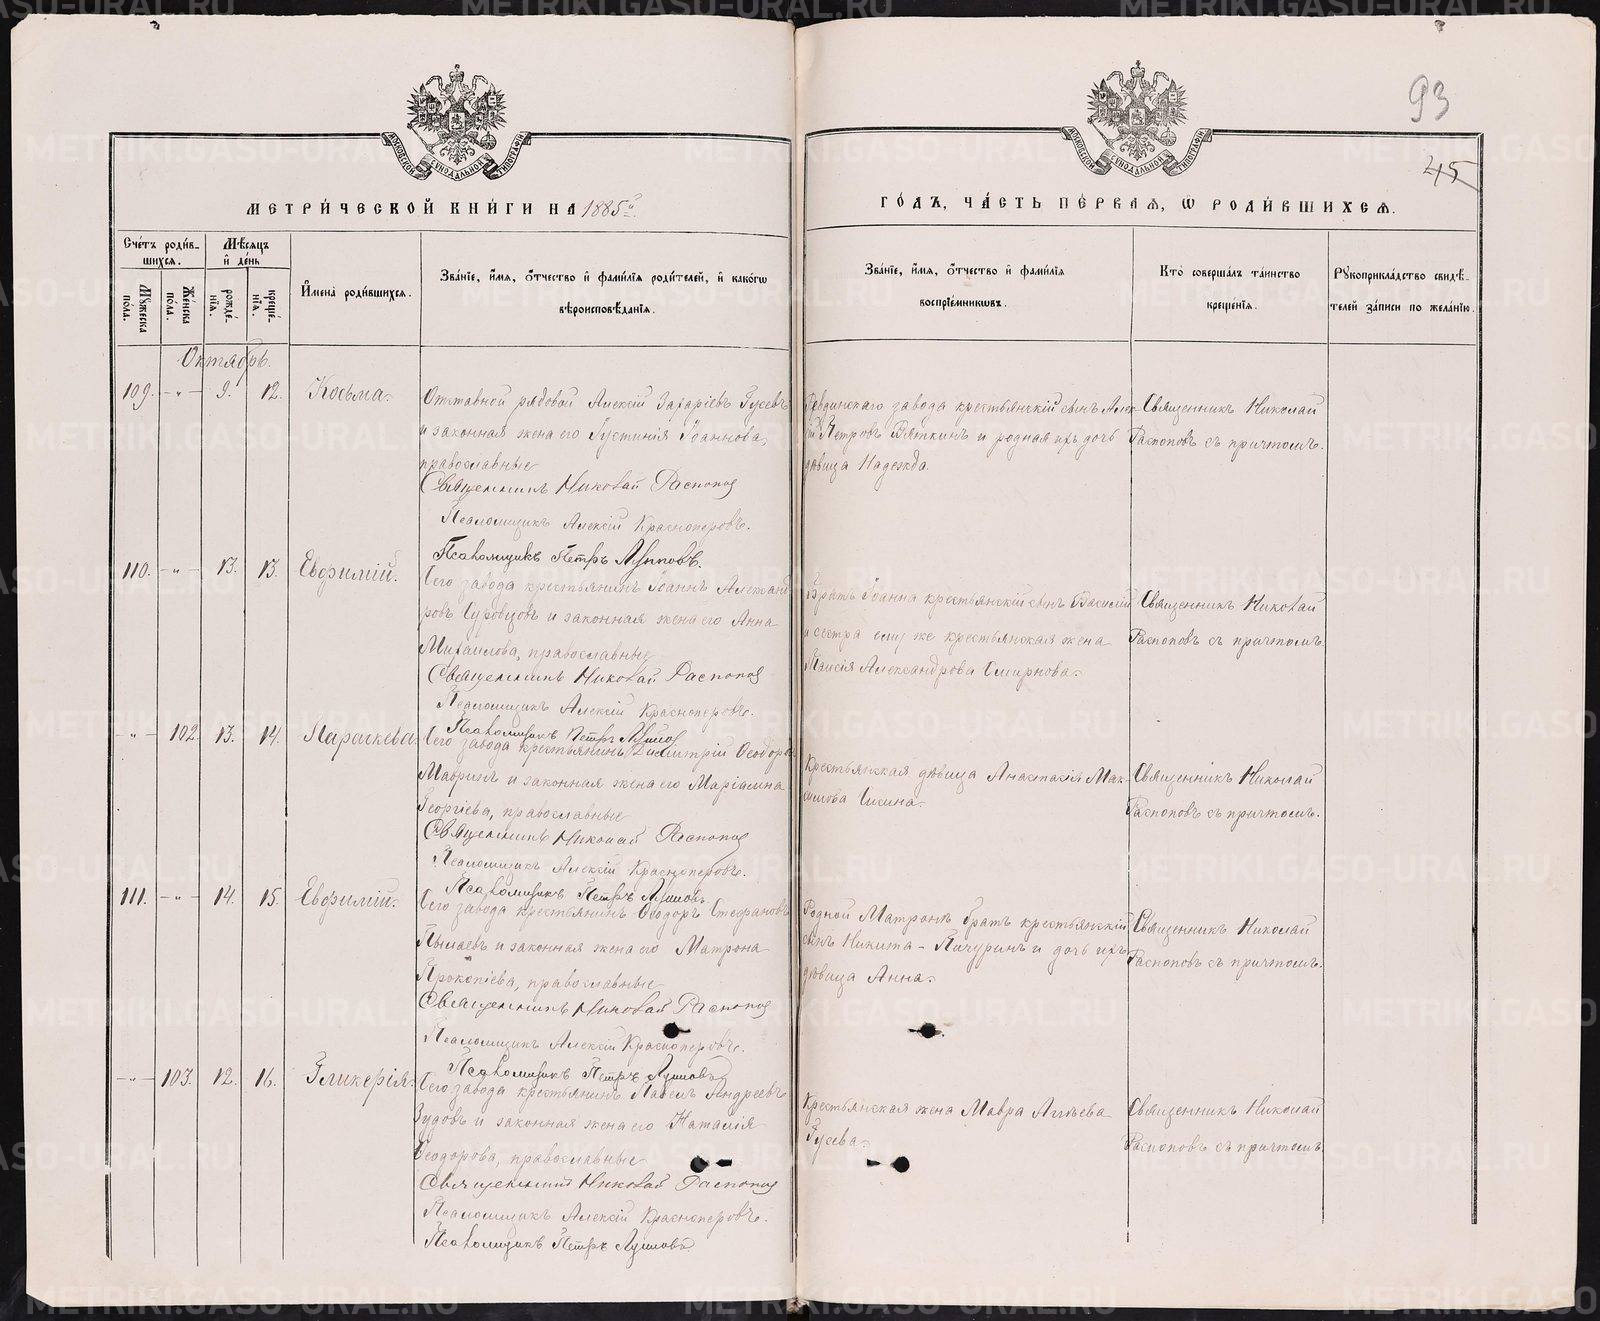 93
45
МОСКОВСКОЙ СѴНОДАЛЬНОЙ ТИПОГРАФІИ
МОСКОВСКОЙ СѴНОДАЛЬНОЙ ТИПОГРАФІИ
МЕТРИ́ЧЕСКОЙ КНИ́ГИ НА 1885й
ГО́ДЪ, ЧА́СТЬ ПЕ́РВАѦ, Ѡ РОДИ́ВШИХСѦ.
Сче́тъ роди́в-
шихсѧ.
Мѣ́сѧцъ
и҆ де́нь
Мꙋ́жеска
по́ла.
Же́нска
по́ла.
рожде́-
нїѧ.
креще́-
нїѧ.
И҆мена̀ роди́вшихсѧ.
Зва́нїе, и҆́мѧ, ѻ҆́тчество и҆ фами́лїѧ роди́телей, и҆ како́гѡ
вѣроисповѣ́данїѧ.
Зва́нїе, и҆́мѧ, ѻ҆́тчество и҆ фами́лїѧ
воспрїе́мникѡвъ.
Кто̀ соверша́лъ та́инство
креще́нїѧ.
Рꙋкоприкла́дство свидѣ́-
телей за́писи по жела́нїю.
Октябрь.
109. — „ — 9. 12. Косьма.
Отставной рядовой Алексій Захаріевъ Гусевъ
и законная жена его Іустинія Іоаннова,
православные
Священникъ Николай Распопов
Псаломщикъ Алексій Красноперовъ.
Псаломщикъ Петръ Лушповъ.
Ревдинскаго завода крестьянскій сынъ Алек-
сій Петровъ Вяткинъ и родная ихъ дочь
дѣвица Надежда.
Священникъ Николай
Распоповъ съ причтомъ.
110. — „ — 13. 13. Евфимій.
Сего завода крестьянинъ Іоаннъ Александ-
ровъ Суровцовъ и законная жена его Анна
Михаилова, православные
Священникъ Николай Распопов
Псаломщикъ Алексій Красноперовъ.
Псаломщикъ Петръ
Братъ Іоанна крестьянскій сынъ Василій
и сестра ему же крестьянская жена
Таисія Александрова Смирнова.
Священникъ Николай
Распоповъ съ причтомъ.
— „ — 102. 13. 14. Параскева.
Сего завода крестьянинъ Димитрій Ѳеодоровъ
Мавринъ и законная жена его Маріамна
Георгіева, православные
Священникъ Николай Распопов
Псаломщикъ Алексій Красноперовъ.
Псаломщикъ Петръ
Крестьянская дѣвица Анастасія Мак-
симова
Священникъ Николай
Распоповъ съ причтомъ.
111. — „ — 14. 15. Евфимій.
Сего завода крестьянинъ Ѳеодоръ Стефановъ
и законная жена его Матрона
Прокопіева, православные
Священникъ Николай Распопов
Псаломщикъ Алексій Красноперовъ.
Псаломщикъ Петръ
Родной Матронѣ братъ крестьянскій
сынъ Никита Пичуринъ и дочь ихъ
дѣвица Анна.
Священникъ Николай
Распоповъ съ причтомъ.
— „ — 103. 12. 16. Гликерія.
Сего завода крестьянинъ Павелъ Андреевъ
Зудовъ и законная жена его Наталія
Ѳеодорова, православные
Священникъ Николай Распопов
Псаломщикъ Алексій Красноперовъ.
Псаломщикъ Петръ
Крестьянская жена Мавра
Гусева.
Священникъ Николай
Распоповъ съ причтомъ.
METRIKI.GASO-URAL.RU